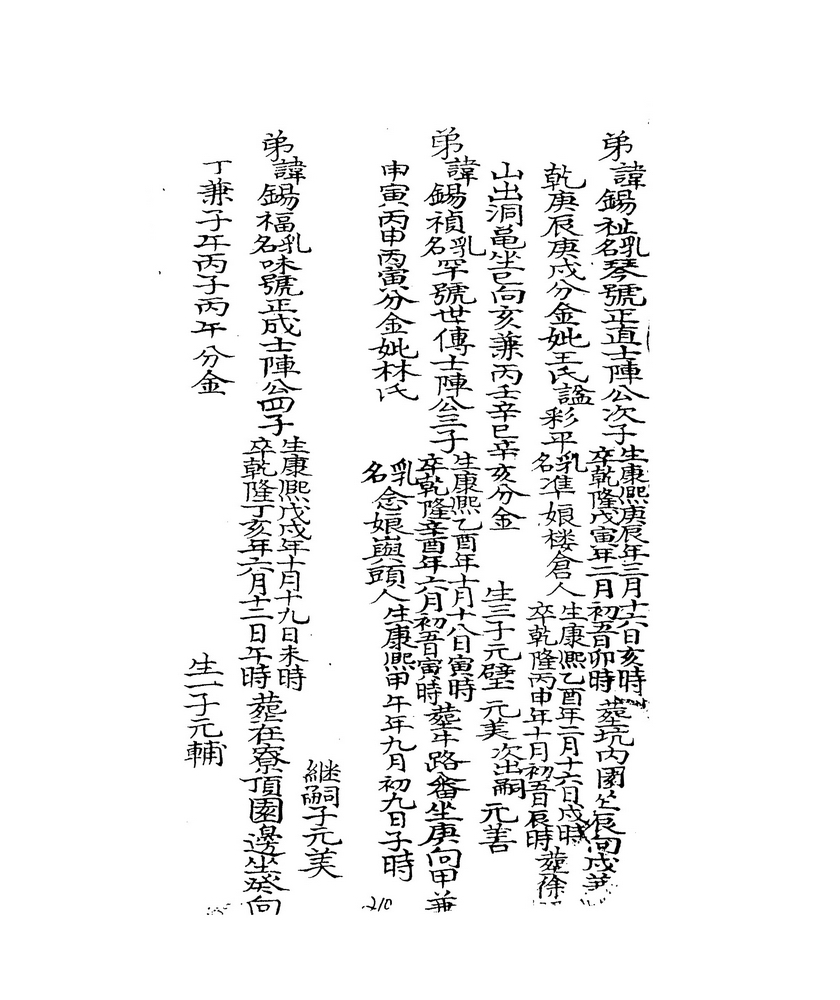 弟諱錫祉乳名琴號正直士陣公次子生康熙庚辰年三月十六日亥時卒乾隆戊寅年二月初五日卯時葬坑內園坐辰向戌兼
乾庚辰庚戌分金妣王氏謚彩平乳名准娘楼倉人生康熙乙酉年二月十六日戌時卒乾隆丙申年十月初五日辰時葬徐
山出洞黽坐巳向亥兼丙壬辛巳辛亥分金 生三子元璧 元美次出嗣 元善
弟諱錫禎乳名罕號世傳士陣公三子生康熙乙酉年十月十八日寅時卒乾隆辛酉年六月初五日寅時葬牛路畬坐庚向甲兼
申寅丙申丙寅分金妣林氏 乳名念娘嶼頭人生康熙甲午年九月初九日子時
継嗣子元美
弟諱錫福乳名味號正成士陣公四子生康熙戊戌年十月十九日未時卒乾隆丁亥年六月十二日午時葬在寮頂園邊坐癸向
丁兼子午丙子丙午分金 生一子元輔
210